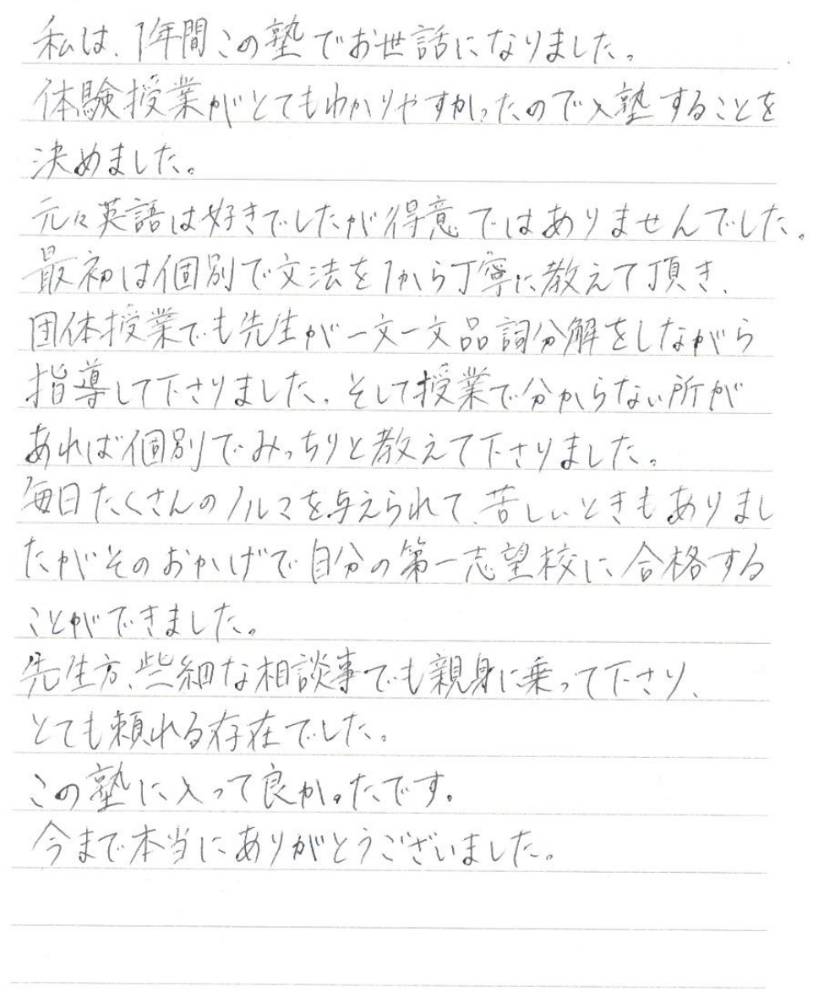 私は、1年間この塾でお世話になりました。
体験授業がとてもわかりやすかったので入塾することを
決めました。
元々英語は好きでしたが得意ではありませんでした。
最初は個別で文法を1から丁寧に教えて頂き、
団体授業でも先生が一文一文品詞分解をしながら
指導して下さりました。そして授業で分からない所が
あれば個別でみっちりと教えて下さりました。
毎日たくさんのノルマを与えられて、苦しいときもありまし
たがそのおかげで自分の第一志望校に合格する
ことができました。
先生方、些細な相談事でも親身に乗って下さり、
とても頼れる存在でした。
この塾に入って良かったです。
今まで本当にありがとうございました。